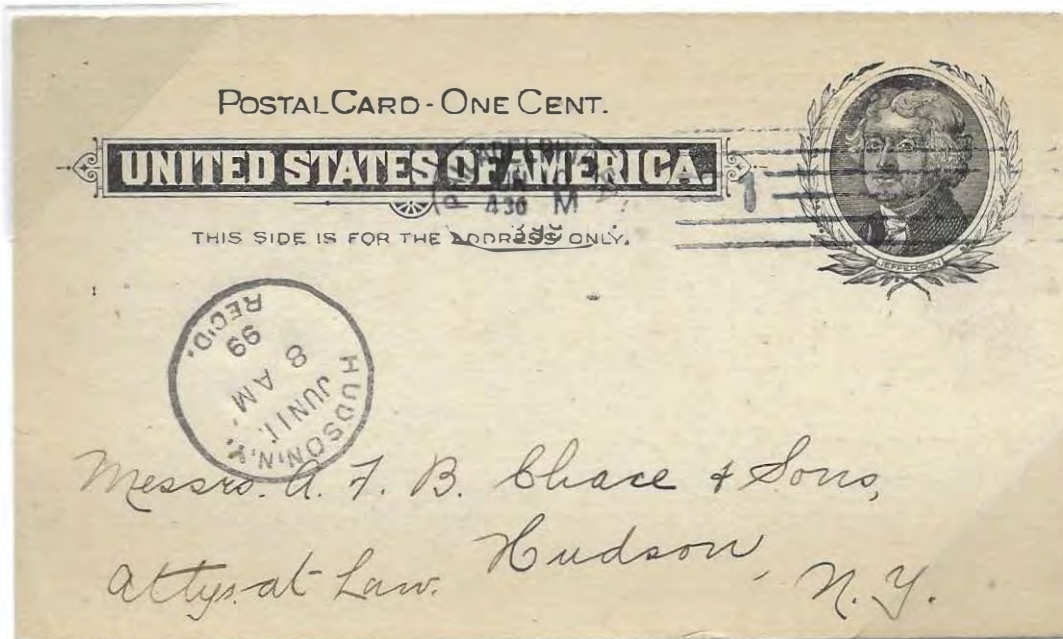 POSTAL CARD - ONE CENT.
UNITED STATES OF AMERICA.
THIS SIDE IS FOR THE ADDRESS ONLY.
430 M
1
JEFFERSON
HUDSON, N.Y.
JUN 11
8 AM
99
REC'D.
Messrs. A. F. B. Chace & Sons,
Attys. at Law. Hudson,
N. Y.